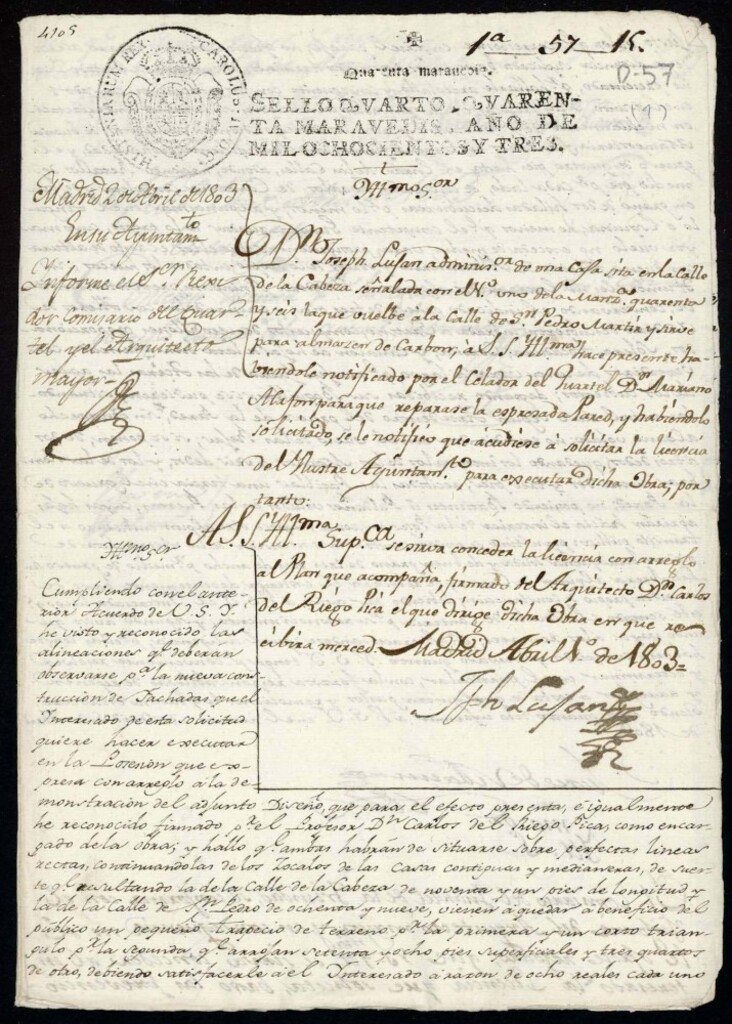 4105
1a 57 15.
Quarenta maravedis.
D-57
(1)
CAROLUS IV D G HISPANIARUM REX
SELLO QVARTO, QVAREN-
TA MARAVEDIS, AÑO DE
MIL OCHOCIENTOS Y TRES.
Yllmo Sor
Madrid 2 de Abril de 1803
En su Ayuntamto
Ynforme el Sor Rexi
dor Comisario del Quar-
tel y el Arquitecto
mayor
Dn Joseph Lusan adminisor de una Casa sita en la Calle
de la Cabeza señalada con el No uno de la Manza quarenta
y seis la que vuelbe à la Calle de Sn Pedro Martir y sirve
para almazen de Carbon, à S.S. Yllma hace presente ha-
biendole notificado por el Celador del Quartel Dn Mariano
Alafon para que reparase la espresada Pared, y habiendolo
solicitado, se le notifico que acudiese à solicitar la licencia
del Yllustre Ayuntamto para executar dicha Obra, por
tanto:
A S.S. Yllma
Supca se sirva conceder la licencia con arreglo
al Plan que acompaña, firmado del Arquitecto Dn Carlos
del Riego Pica el que dirige dicha Obra en que re-
cibira merced. Madrid Abril 1o de 1803=
Jph Lusan
Yllmo Sor
Cumpliendo con el ante-
rior Acuerdo de V.S.Y.
he visto y reconocido las
alineaciones qe deberan
observarse pa la nueva cons-
truccion de Fachadas que el
Interesado de esta solicitud
quiere hacer executar
en la Posesion que ex-
presa con arreglo à la de-
monstracion del adjunto Diseño, que para el efecto presenta, è igualmente
he reconocido firmado pr el Profesor Dn Carlos del Riego Pica, como encar-
gado de la obra; y hallo qe ambas habrán de situarse sobre perfectas lineas
rectas, continuandolas de los Zocalos de las Casas contiguas y medianeras, de suer-
te qe resultando la de la Calle de la Cabeza de noventa y un pies de longitud y
la de la Calle de Sn Pedro de ochenta y nueve, vienen à quedar a beneficio del
público un pequeño Trapecio de terreno pr la primera y un corto trian-
gulo pr la segunda, qe arrojan setenta y ocho pies superficiales y tres quartos
de otro, debiendo satisfacerle à el Interesado à razon de ocho reales cada uno